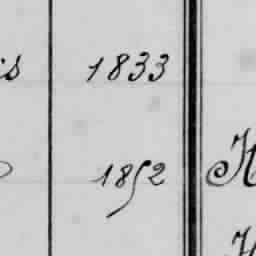 is 1833
1852 H
H